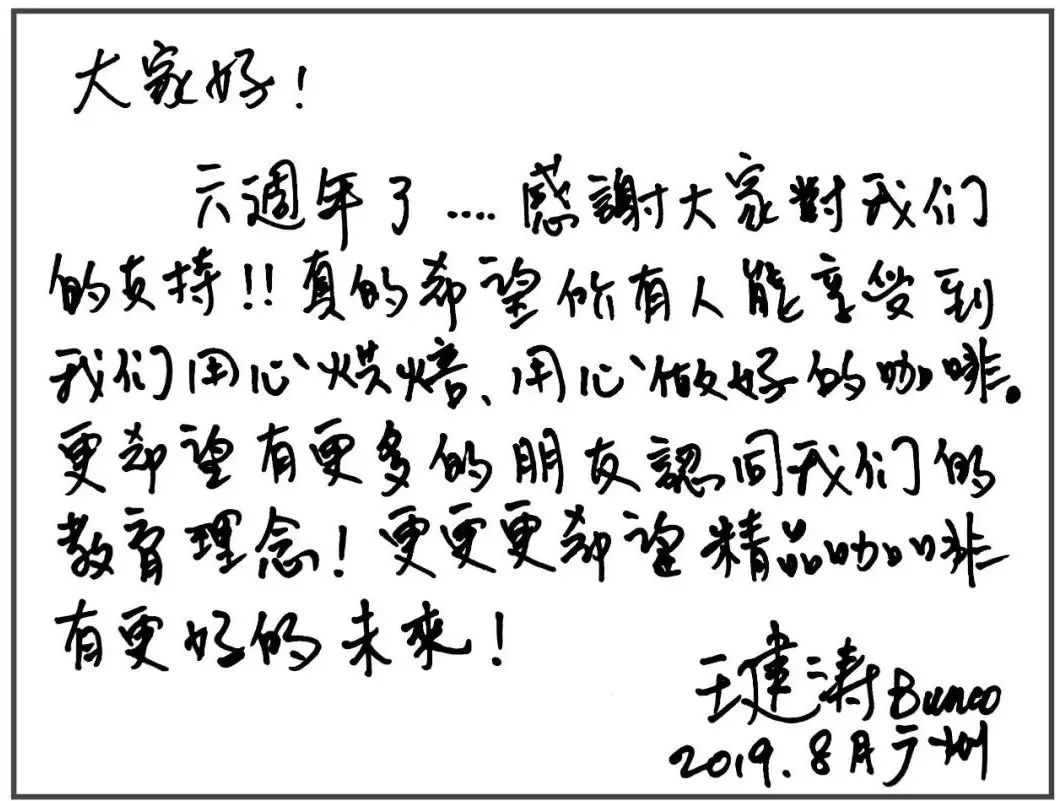 大家好!
六週年了....感謝大家對我们
的支持!!真的希望所有人能享受到
我们用心烘焙、用心做好的咖啡。
更希望有更多的朋友認同我们的
教育理念!更更更希望精品咖啡
有更好的未來!
王建涛 Bunco
2019.8月广州